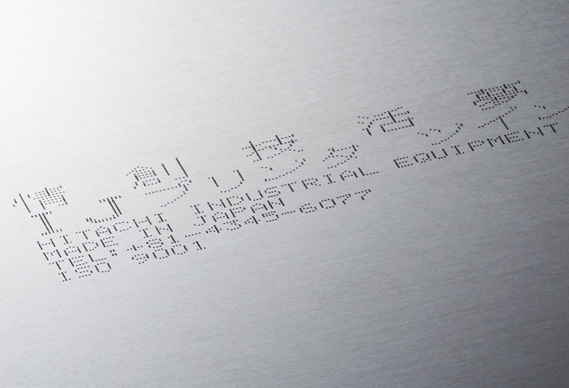 情 創 技 活 夢
IJ
HITACHI INDUSTRIAL EQUIPMENT
MADE IN JAPAN
TEL:+81-4345-6077
ISO 9001